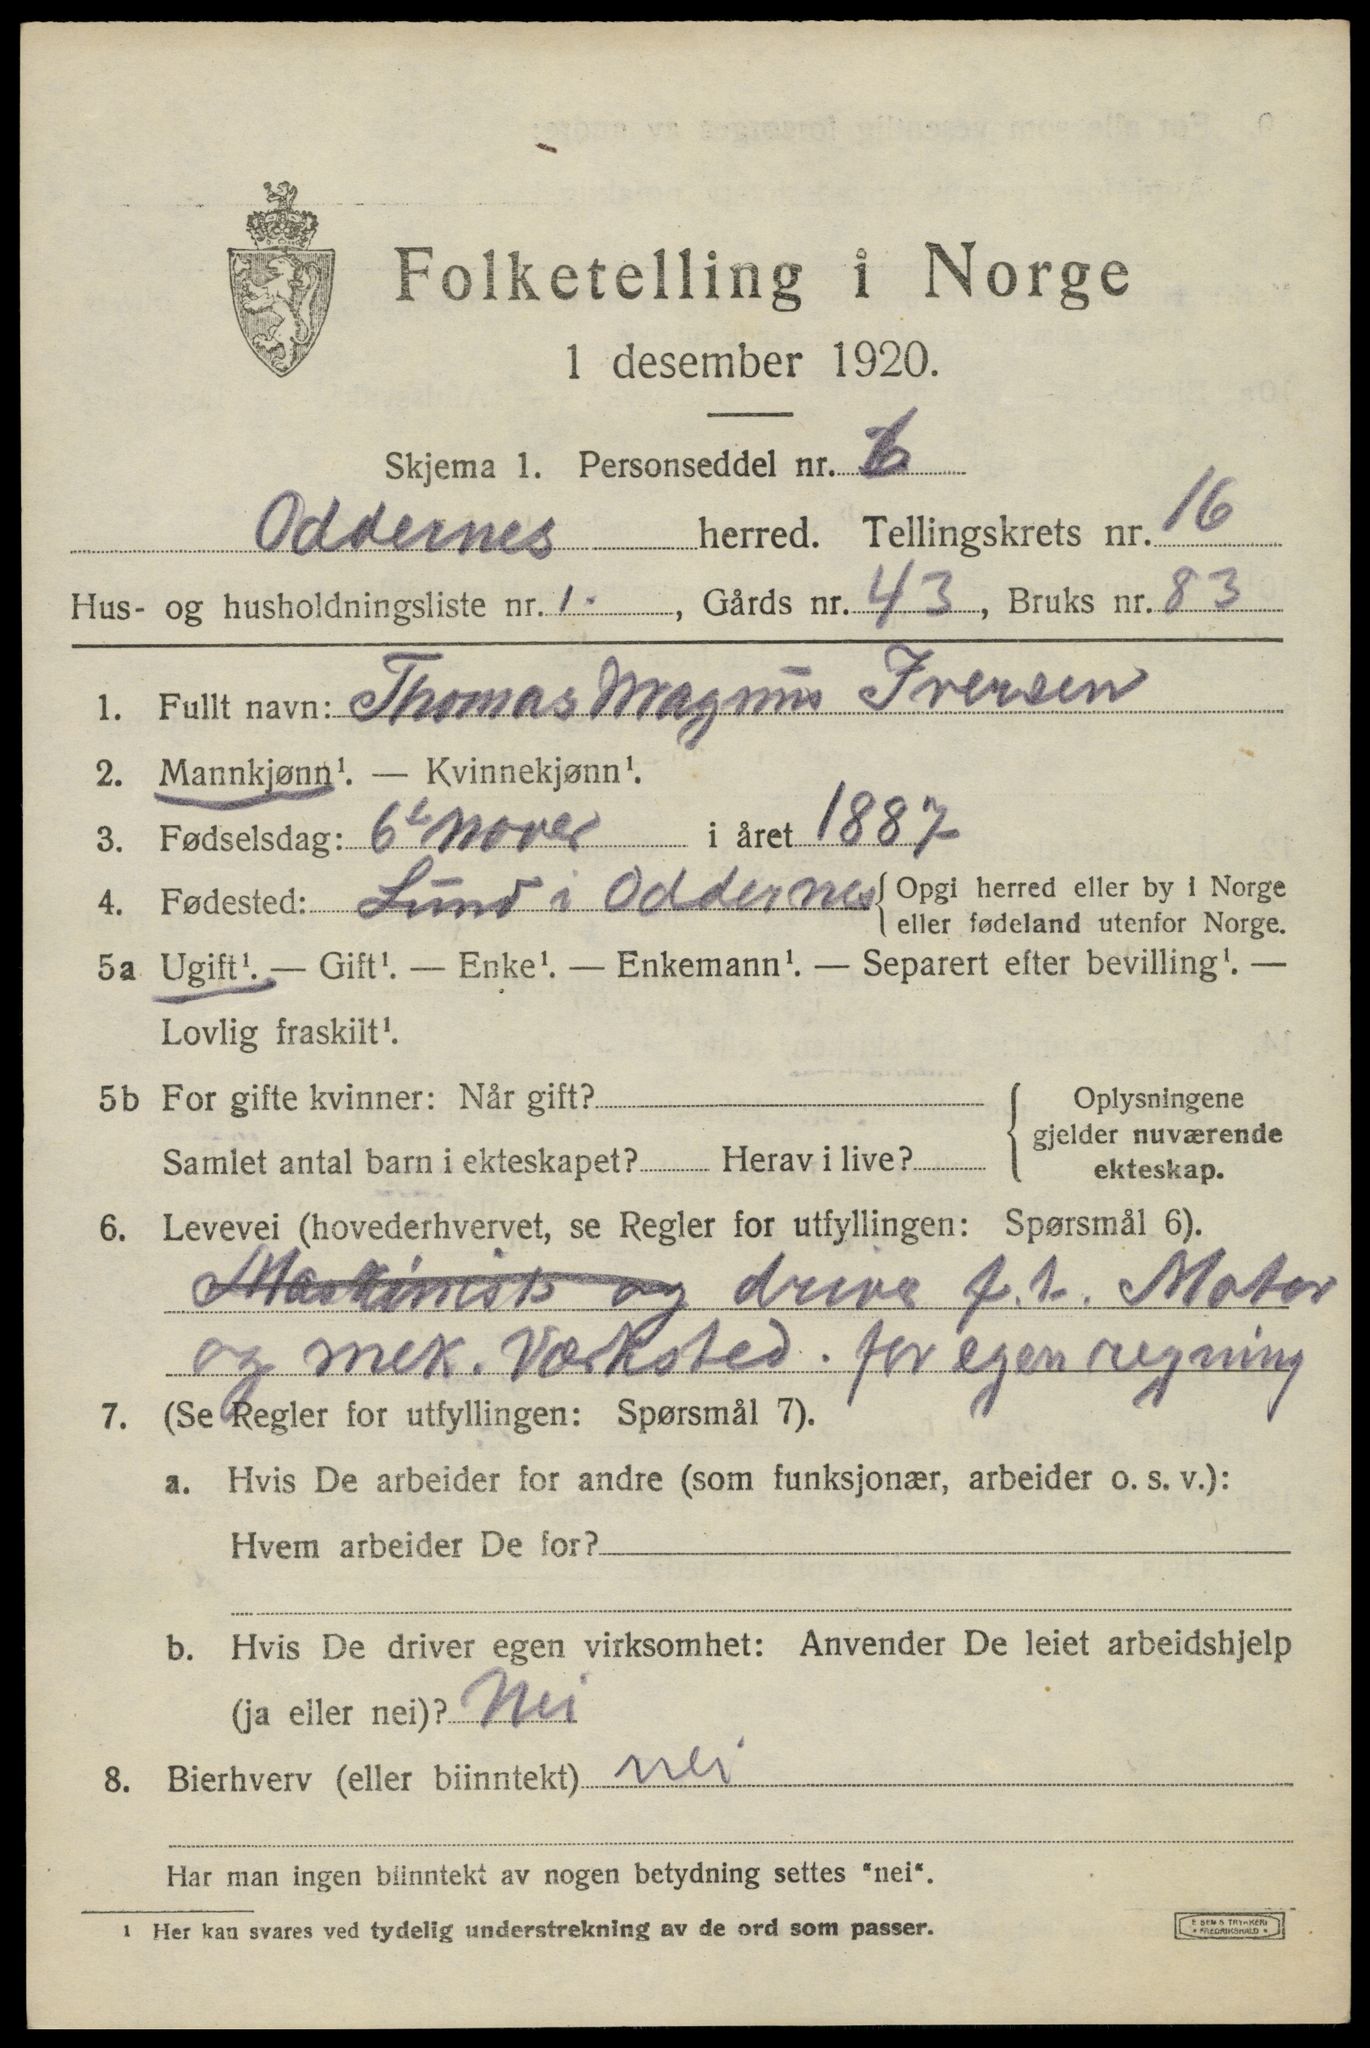 Folketelling i Norge
1 desember 1920.
Skjema 1. Personseddel nr. 6
Oddernes herred. Tellingskrets nr. 16
Hus- og husholdningsliste nr. 1. , Gårds nr. 43 , Bruks nr. 83
1. Fullt navn: Thomas Magnus Iversen
2. Mannkjønn¹. — Kvinnekjønn¹.
3. Fødselsdag: 6te Novbr i året 1887
4. Fødested: Lund i Oddernes { Opgi herred eller by i Norge
eller fødeland utenfor Norge.
5a Ugift¹. — Gift¹. — Enke¹. — Enkemann¹. — Separert efter bevilling¹. —
Lovlig fraskilt¹.
5b For gifte kvinner: Når gift?
Samlet antal barn i ekteskapet? Herav i live?
Oplysningene
gjelder nuværende
ekteskap.
6. Levevei (hovederhvervet, se Regler for utfyllingen: Spørsmål 6).
Maskinist og driver f.t. Motor
og mek. Værksted. for egen regning
7. (Se Regler for utfyllingen: Spørsmål 7).
a. Hvis De arbeider for andre (som funksjonær, arbeider o. s. v.):
Hvem arbeider De for?
b. Hvis De driver egen virksomhet: Anvender De leiet arbeidshjelp
(ja eller nei)? Nei
8. Bierhverv (eller biinntekt) nei
Har man ingen biinntekt av nogen betydning settes "nei".
¹ Her kan svares ved tydelig understrekning av de ord som passer.
E SEM S TRYKKERI
FREDRIKSHALD